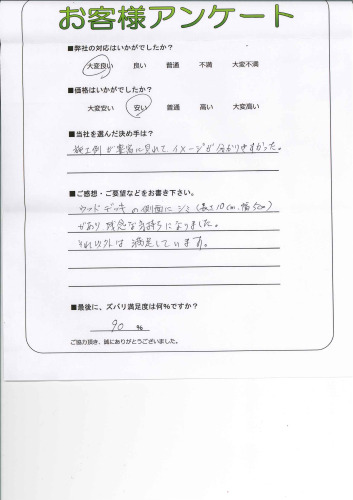 お客様アンケート
■弊社の対応はいかがでしたか?
大変良い 良い 普通 不満 大変不満
■価格はいかがでしたか?
大変安い 安い 普通 高い 大変高い
■当社を選んだ決め手は?
施工例が豊富に見れてイメージが分かりやすかった。
■ご感想・ご要望などをお書き下さい。
ウッドデッキの側面にシミ(長さ10cm、幅5cm)
があり残念な気持ちになりました。
それ以外は満足しています。
■最後に、ズバリ満足度は何%ですか?
90 %
ご協力頂き、誠にありがとうございました。